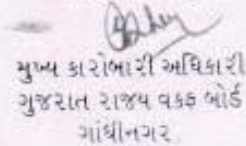 મુખ્ય કારોબારી અધિકારી
ગુજરાત રાજય વકફ બોર્ડ
ગાંધીનગર